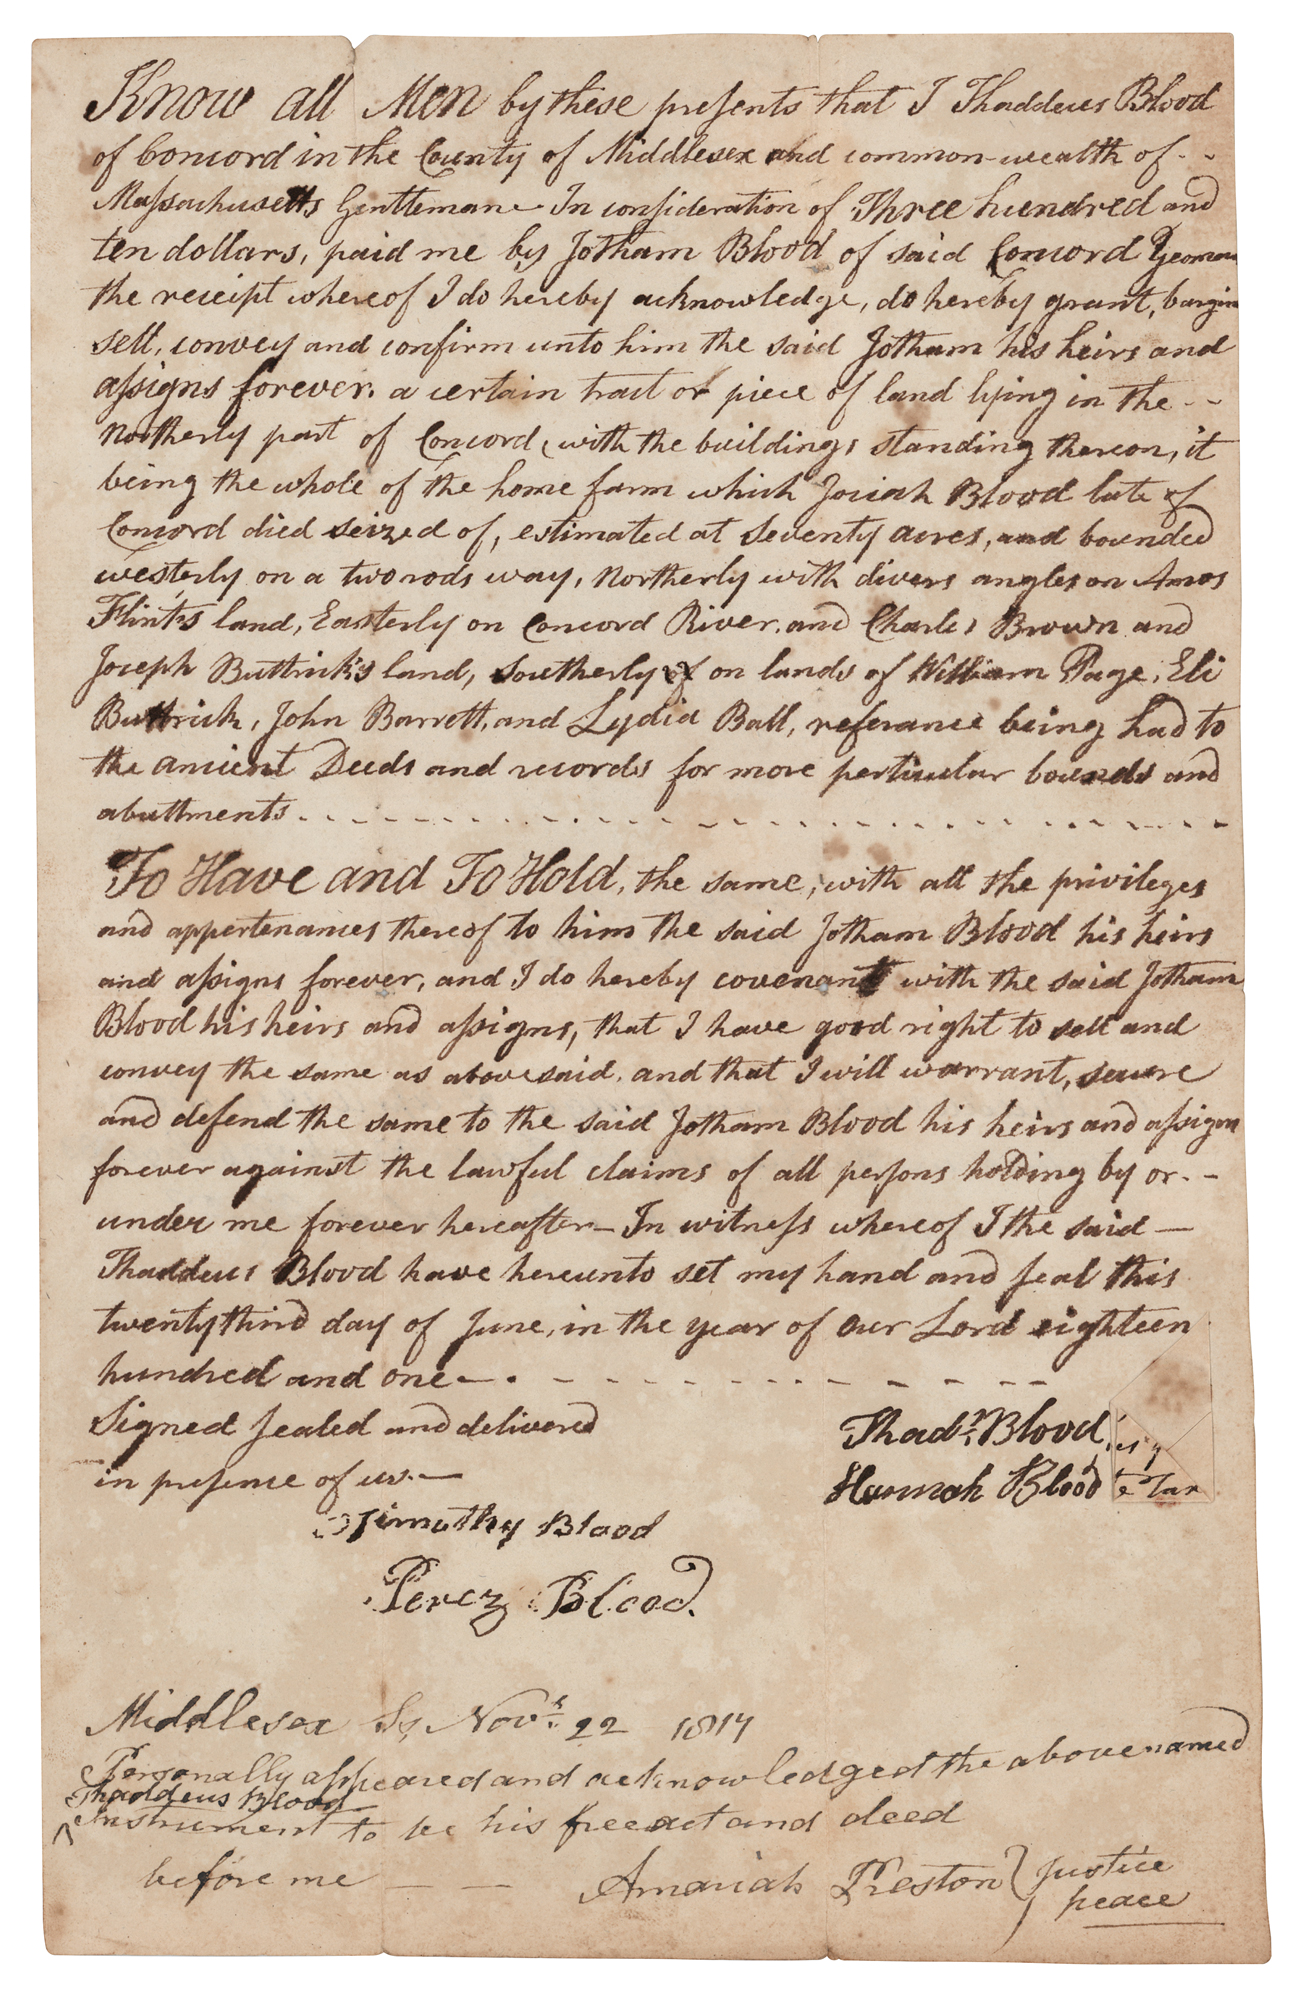 Know all Men by these presents that I Thaddeus Blood
of Concord in the County of Middlesex and common-wealth of - -
Massachusetts Gentleman - In consideration of Three hundred and
ten dollars, paid me by Jotham Blood of said Concord Yeoman
the receipt whereof I do hereby acknowledge, do hereby grant, bargin
sell, convey and confirm unto him the said Jotham his heirs and
assigns forever. a certain tract or piece of land lying in the - -
Northerly part of Concord, with the buildings standing thereon, it
being the whole of the home farm which Josiah Blood late of
Concord died seized of, estimated at seventy acres, and bounded
westerly on a two rods way, Northerly with divers angles on Amos
Flint's land, Easterly on Concord River, and Charles Brown and
Joseph Buttrick's land, Southerly of on lands of William Page, Eli
Buttrick, John Barrett, and Lydia Ball, referance being had to
the ancient Deeds and records for more perticular bounds and
abuttments
To Have and To Hold, the same, with all the privileges
and appertenances thereof to him the said Jotham Blood his heirs
and assigns forever, and I do hereby covenant with the said Jotham
Blood his heirs and assigns, that I have good right to sell and
convey the same as abovesaid. and that I will warrant, secure
and defend the same to the said Jotham Blood his heirs and assigns
forever against the lawful claims of all persons holding by or - -
under me forever hereafter - In witness whereof I the said -
Thaddeus Blood have hereunto set my hand and seal this
twenty third day of June, in the year of our Lord eighteen
hundred and one - .
Signed sealed and delivered
in presence of us. -
Thads. Blood
Hannah Blood
Timothy Blood
Perez Blood.
Middlesex Ss, Novr. 22 1817
Personally appeared and acknowledged the above named
Thaddeus Blood
^ Instrument to be his free act and deed
before me - - Amariah Preston } Justice
peace